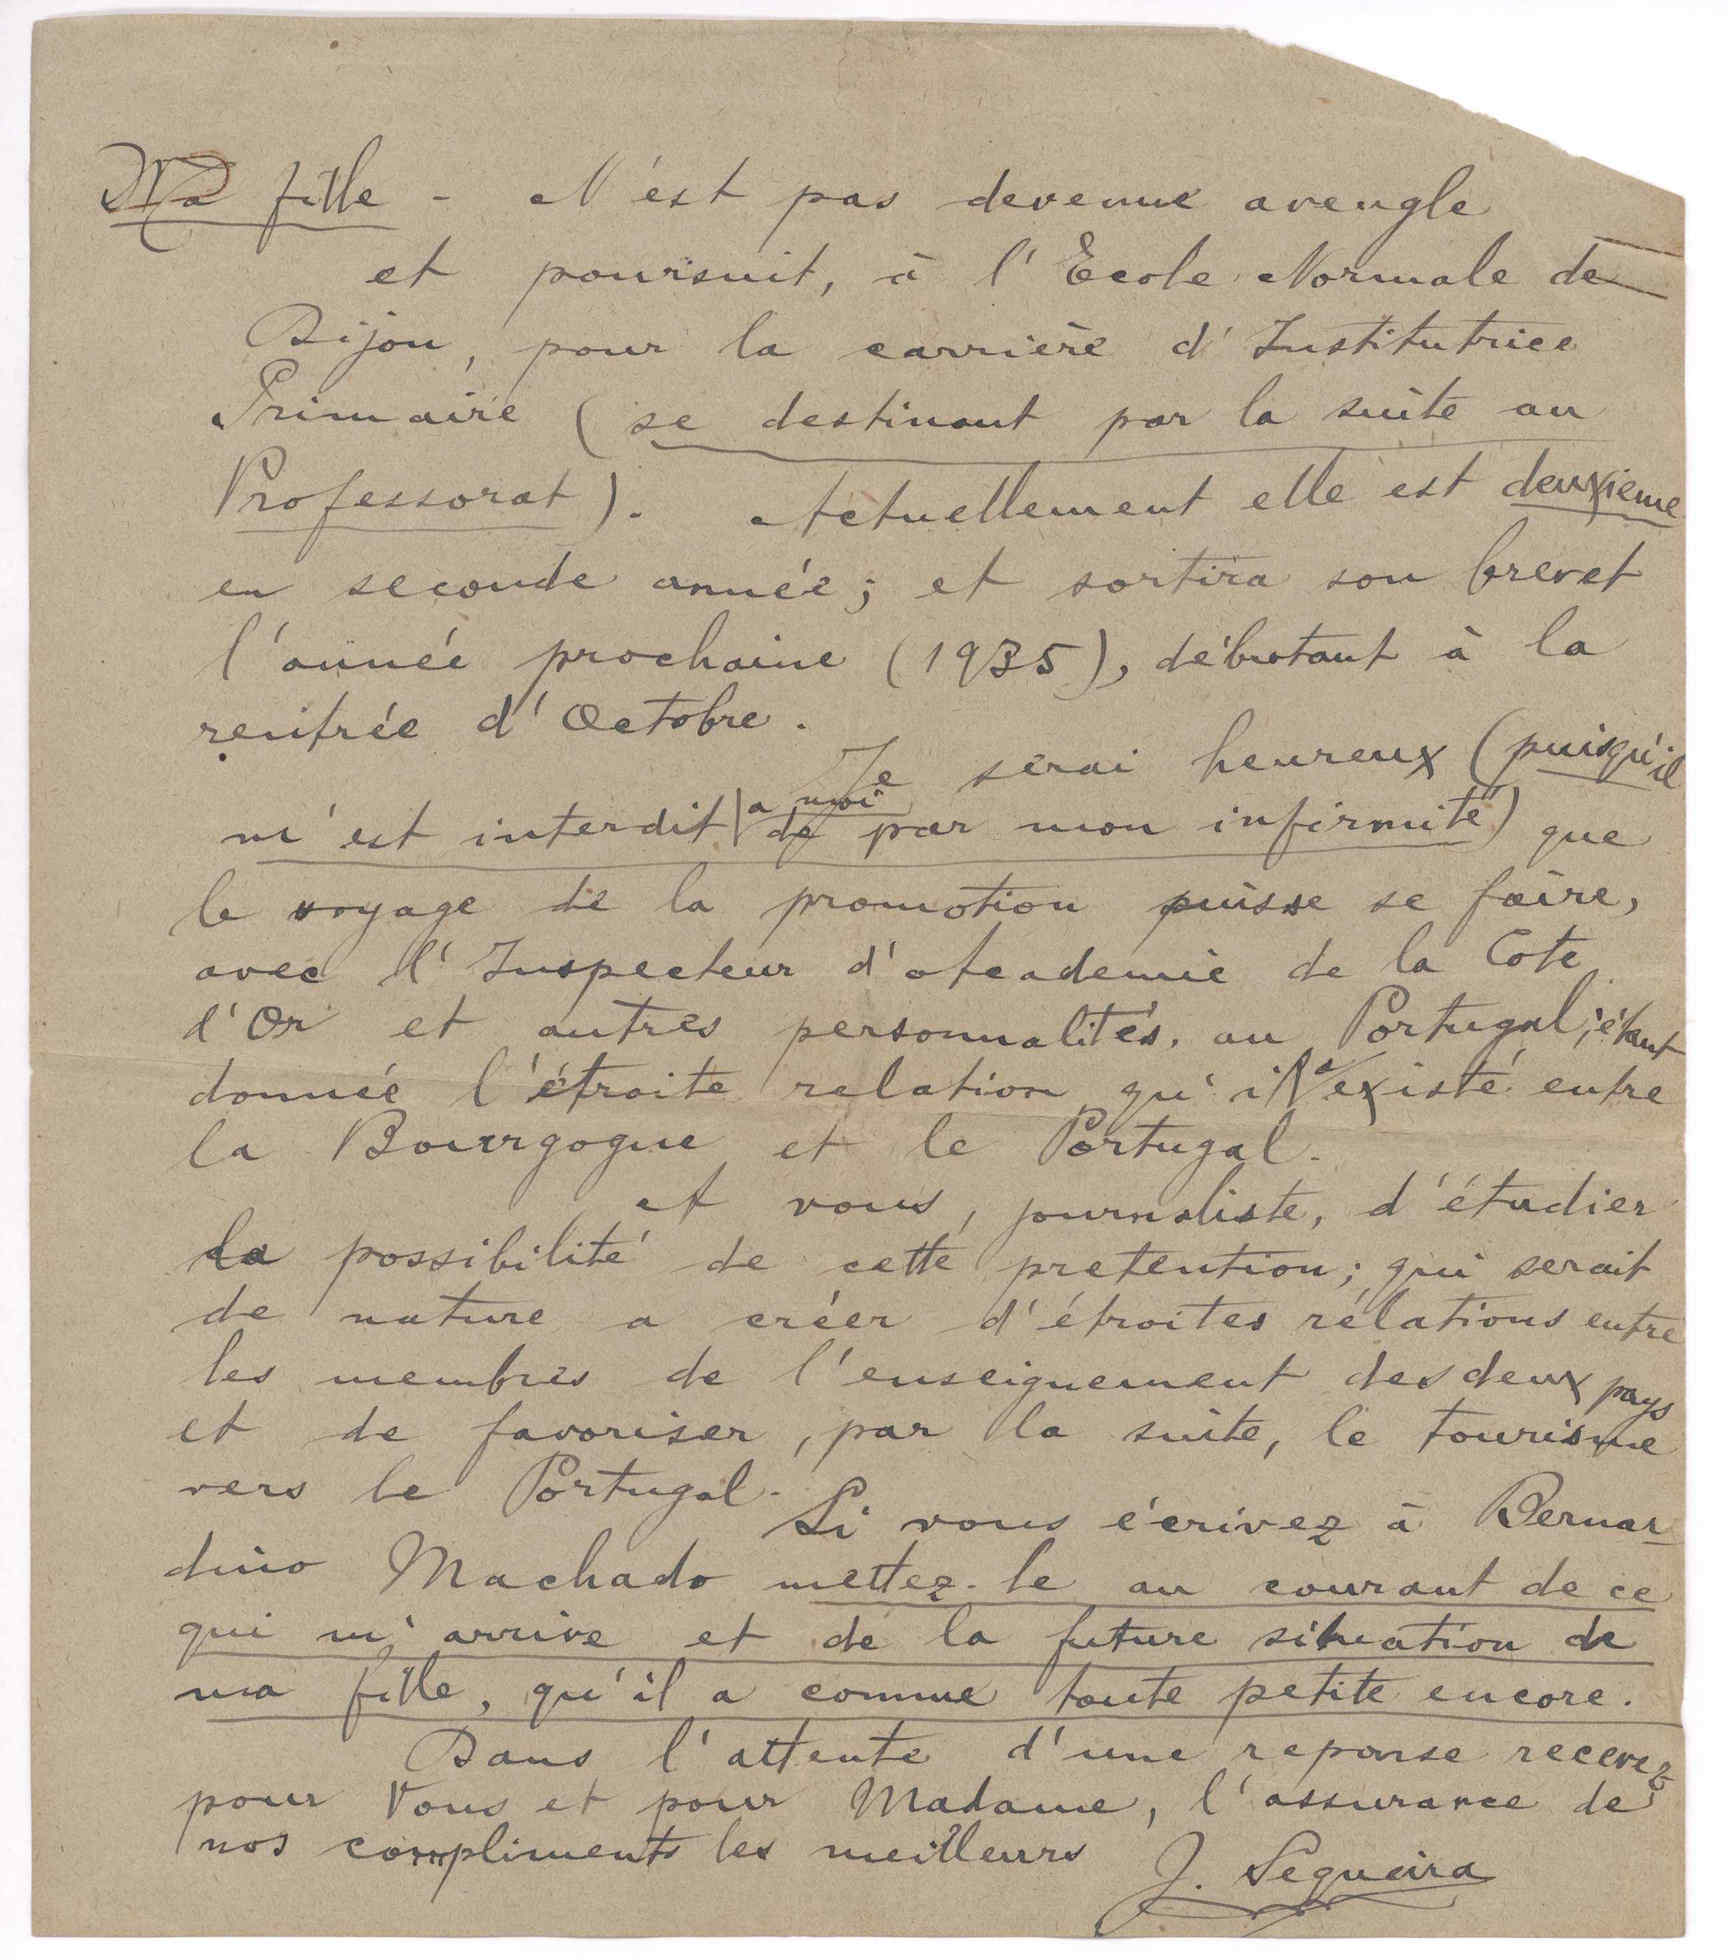 Ma fille - N'est pas devenue aveugle
et poursuit, à l'Ecole Normale de
Dijon, pour la carrière d'Institutrice
Primaire (se destinant par la suite au
Professorat). Actuellement elle est deuxieme
en seconde année; et sortira son brevet
l'année prochaine (1935), débutant à la
rentrée d'Octobre.
Je serai heureux (puisqu'il
m'est interdit a moi de par mon infirmité) que
le voyage de la promotion puisse se faire,
avec l'Inspecteur d'Academie de la Cote
d'Or et autres personnalités, au Portugal; étant
donnée l'étroite relation qu'il a existé entre
la Bourrgogne et le Portugal.
A vous, journaliste, d'étudier
la possibilité de cette pretention; qui serait
de nature a créer d'étroites rélations entre
les membres de l'enseignement des deux pays
et de favoriser, par la suite, le tourisme
vers le Portugal.
Si vous écrivez à Bernar-
dino Machado mettez-le au courant de ce
qui m'arrive et de la future situation de
ma fille, qu'il a connue toute petite encore.
Dans l'attente d'une reponse recevez
pour Vous et pour Madame, l'assurance de
nos compliments les meilleurs
J. Sequeira